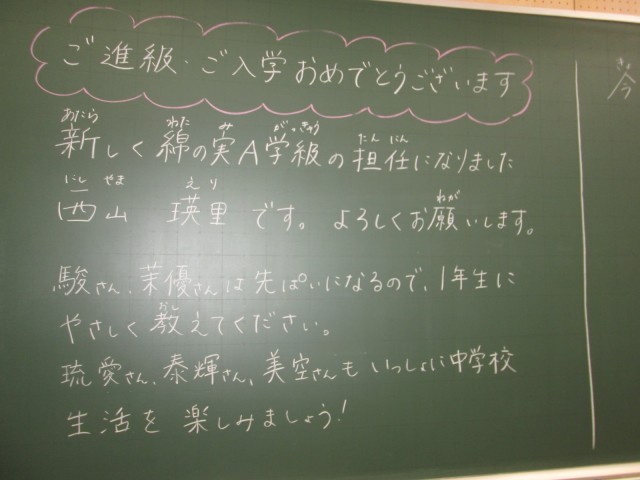 ご進級・ご入学おめでとうございます
あたら わた み がっきゅう たん にん
新しく 綿の実A学級の担任になりました
にし やま えり ねが
西山 瑛里です。よろしくお願いします。
駿さん、茉優さんは先ぱいになるので、1年生に
おし
やさしく教えてください。
琉愛さん、泰輝さん、美空さんもいっしょに中学校
生活を楽しみましょう!
きょ
今